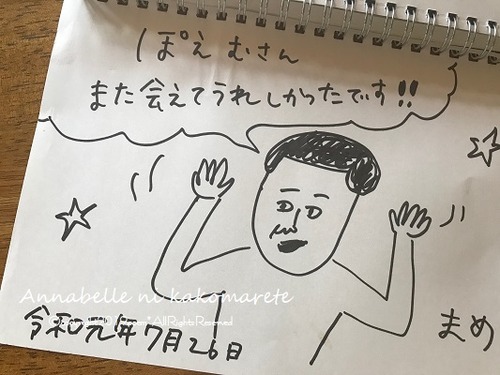 ぽえむさん
また会えてうれしかったです!!
Annabelle ni kakomarete
令和元年7月26日
まめ